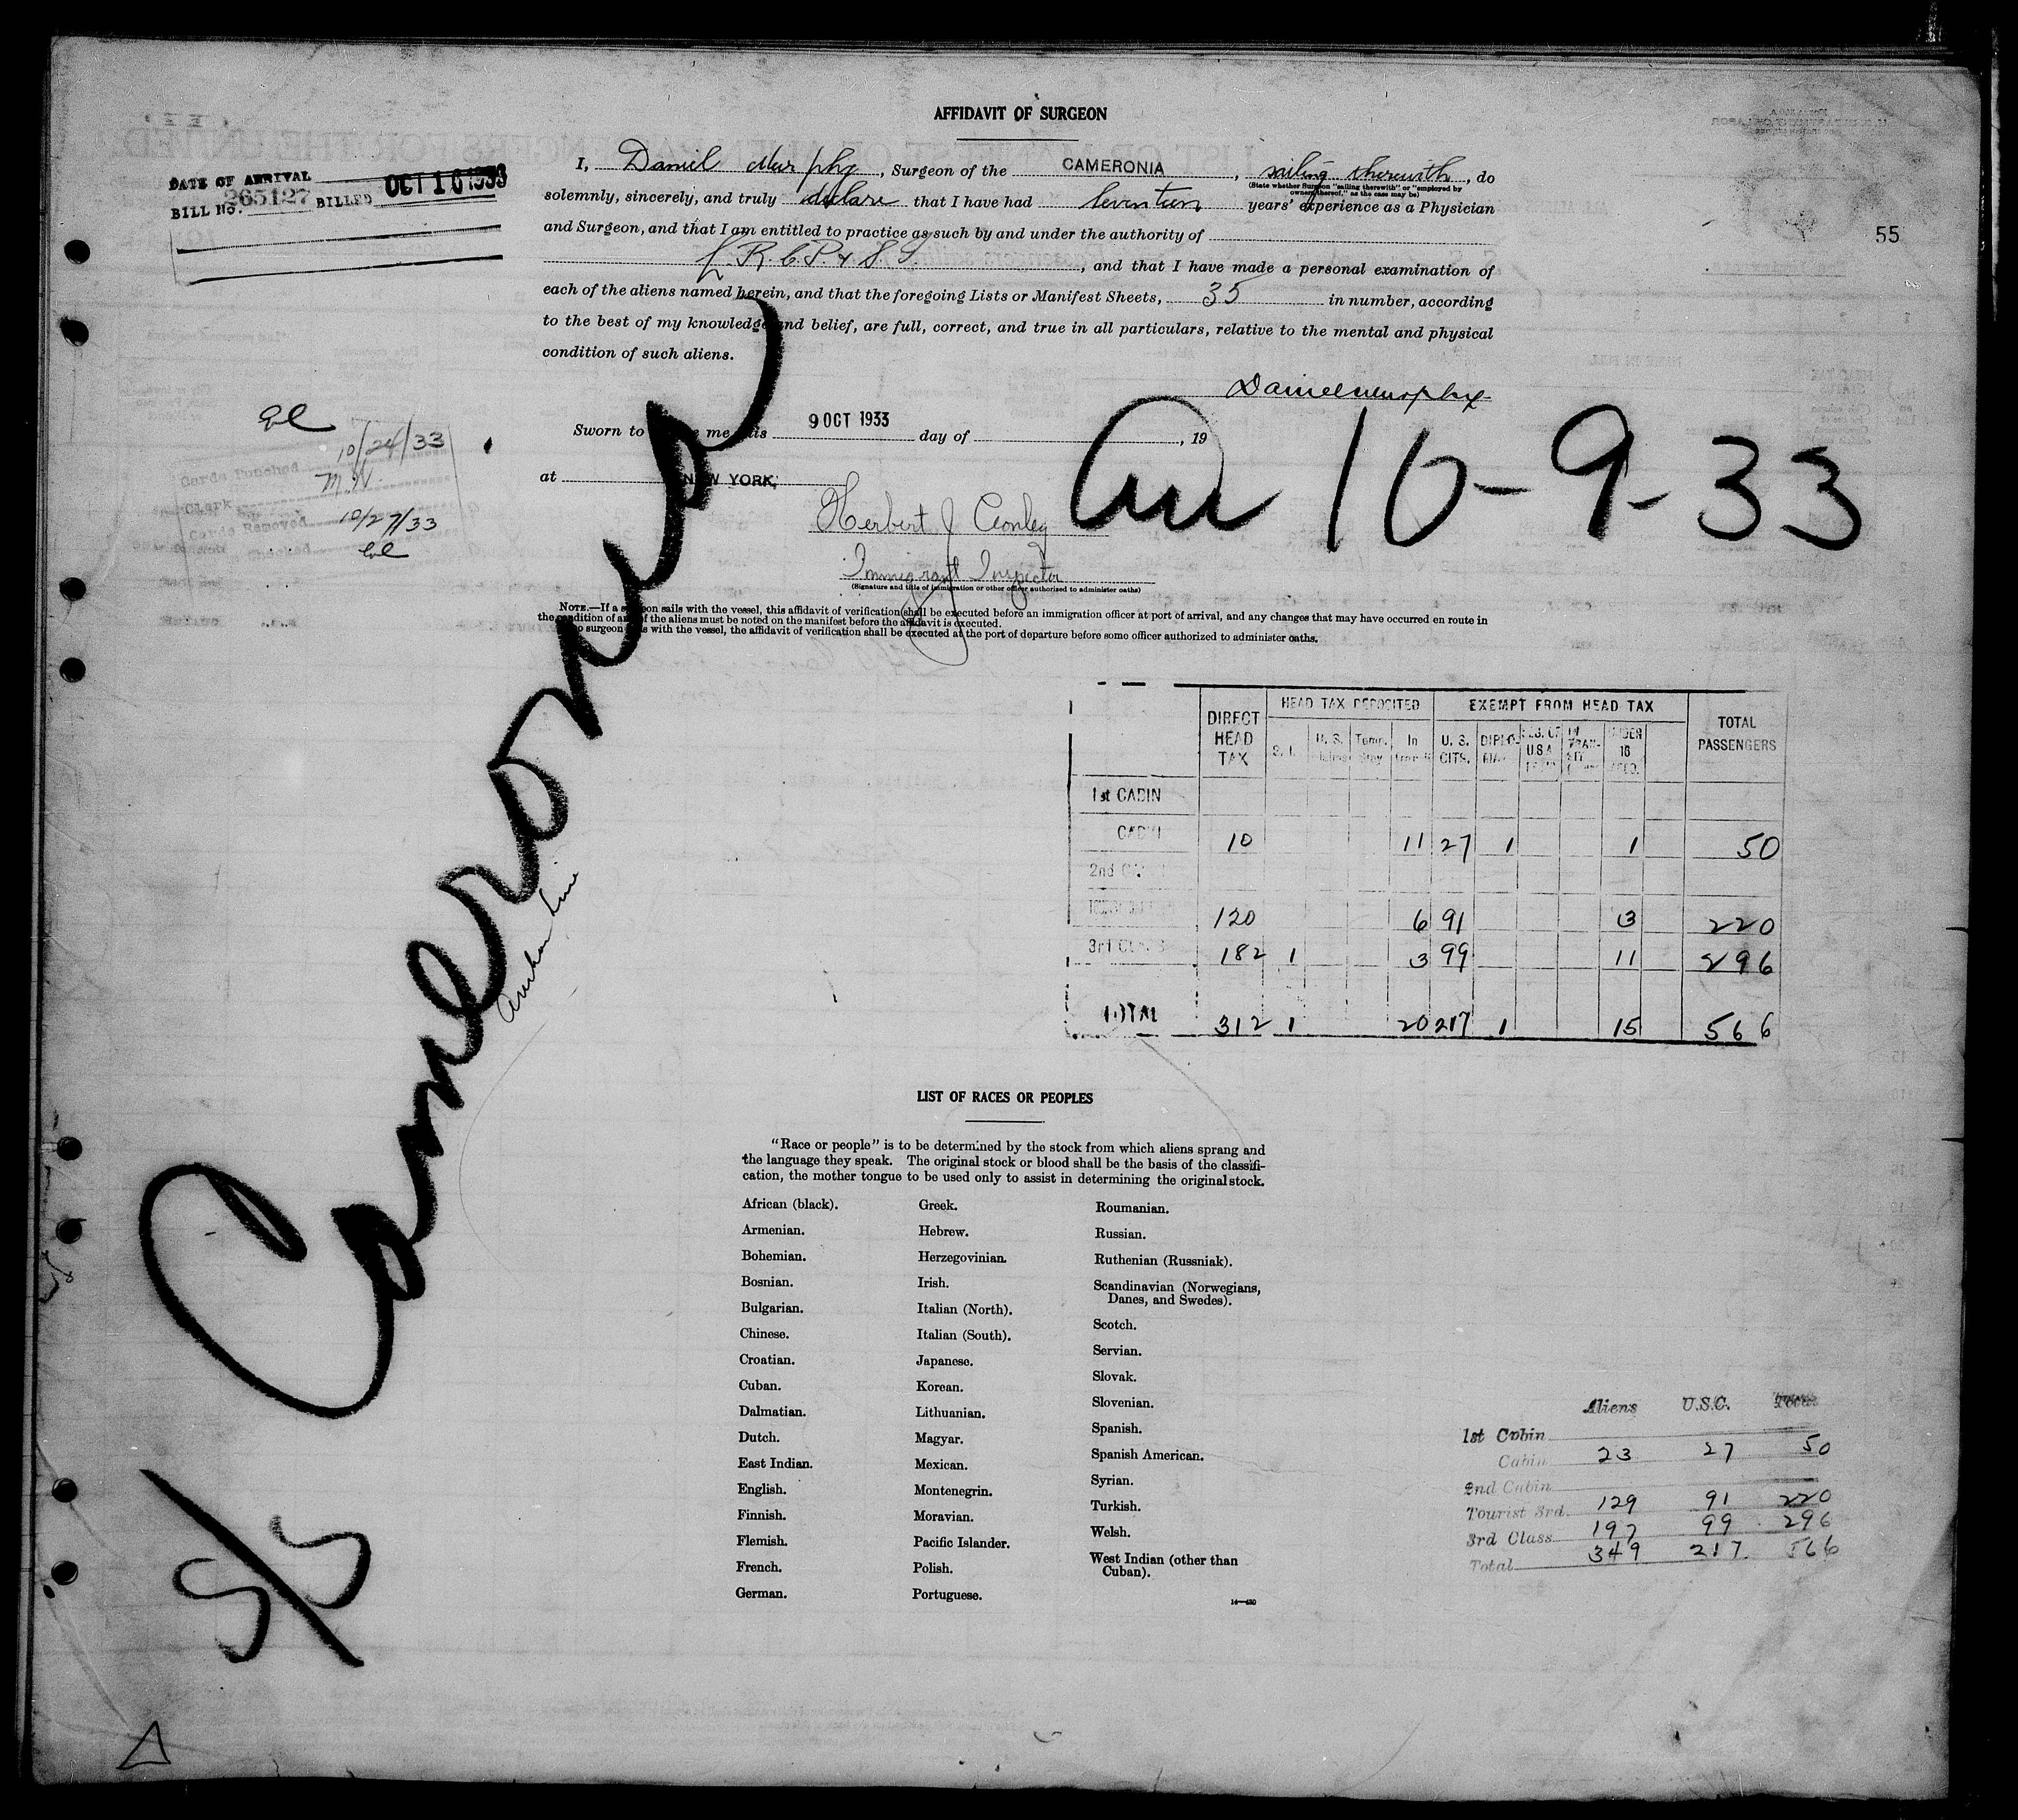 AFFIDAVIT OF SURGEON
I, Daniel Murphy, Surgeon of the CAMERONIA, sailing therewith, do
(State whether Surgeon "sailing therewith" or "employed by
owners thereof," as the case may be)
solemnly, sincerely, and truly declare that I have had Seventeen years' experience as a Physician
and Surgeon, and that I am entitled to practice as such by and under the authority of
L.R.C.P. & S.I., and that I have made a personal examination of
each of the aliens named herein, and that the foregoing Lists or Manifest Sheets, 35 in number, according
to the best of my knowledge and belief, are full, correct, and true in all particulars, relative to the mental and physical
condition of such aliens.
Daniel Murphy
DATE OF ARRIVAL
BILL No. 265127 BILLED OCT 10 1933
55
Sworn to before me this 9 OCT 1933 day of , 19
at NEW YORK,
Herbert J Conley
Immigrant Inspector
(Signature and title of immigration or other officer authorized to administer oaths)
10-9-33
10/24/33
Cards Punched
M.N.
Clerk
Cards Removed 10/27/33
NOTE.—If a surgeon sails with the vessel, this affidavit of verification shall be executed before an immigration officer at port of arrival, and any changes that may have occurred en route in
the condition of any of the aliens must be noted on the manifest before the affidavit is executed.
If no surgeon sails with the vessel, the affidavit of verification shall be executed at the port of departure before some officer authorized to administer oaths.
S/S Cameronia
Anchor Line
DIRECT HEAD TAX HEAD TAX DEPOSITED EXEMPT FROM HEAD TAX TOTAL PASSENGERS
S. I. U. S. Temp. Stay In Transit U. S. CITS. DIPLO- U.S.A. IN TRAN- SIT UNDER 16
1st CABIN
CABIN 10 11 27 1 1 50
2nd
120 6 91 3 220
3rd CLASS 182 1 3 99 11 296
TOTAL 312 1 20 217 1 15 566
LIST OF RACES OR PEOPLES
"Race or people" is to be determined by the stock from which aliens sprang and
the language they speak. The original stock or blood shall be the basis of the classifi-
cation, the mother tongue to be used only to assist in determining the original stock.
African (black).
Armenian.
Bohemian.
Bosnian.
Bulgarian.
Chinese.
Croatian.
Cuban.
Dalmatian.
Dutch.
East Indian.
English.
Finnish.
Flemish.
French.
German.
Greek.
Hebrew.
Herzegovinian.
Irish.
Italian (North).
Italian (South).
Japanese.
Korean.
Lithuanian.
Magyar.
Mexican.
Montenegrin.
Moravian.
Pacific Islander.
Polish.
Portuguese.
Roumanian.
Russian.
Ruthenian (Russniak).
Scandinavian (Norwegians,
Danes, and Swedes).
Scotch.
Servian.
Slovak.
Slovenian.
Spanish.
Spanish American.
Syrian.
Turkish.
Welsh.
West Indian (other than
Cuban).
14—430
Aliens U.S.C. Total
1st Cabin
Cabin 23 27 50
2nd Cabin
Tourist 3rd 129 91 220
3rd Class 197 99 296
Total 349 217 566